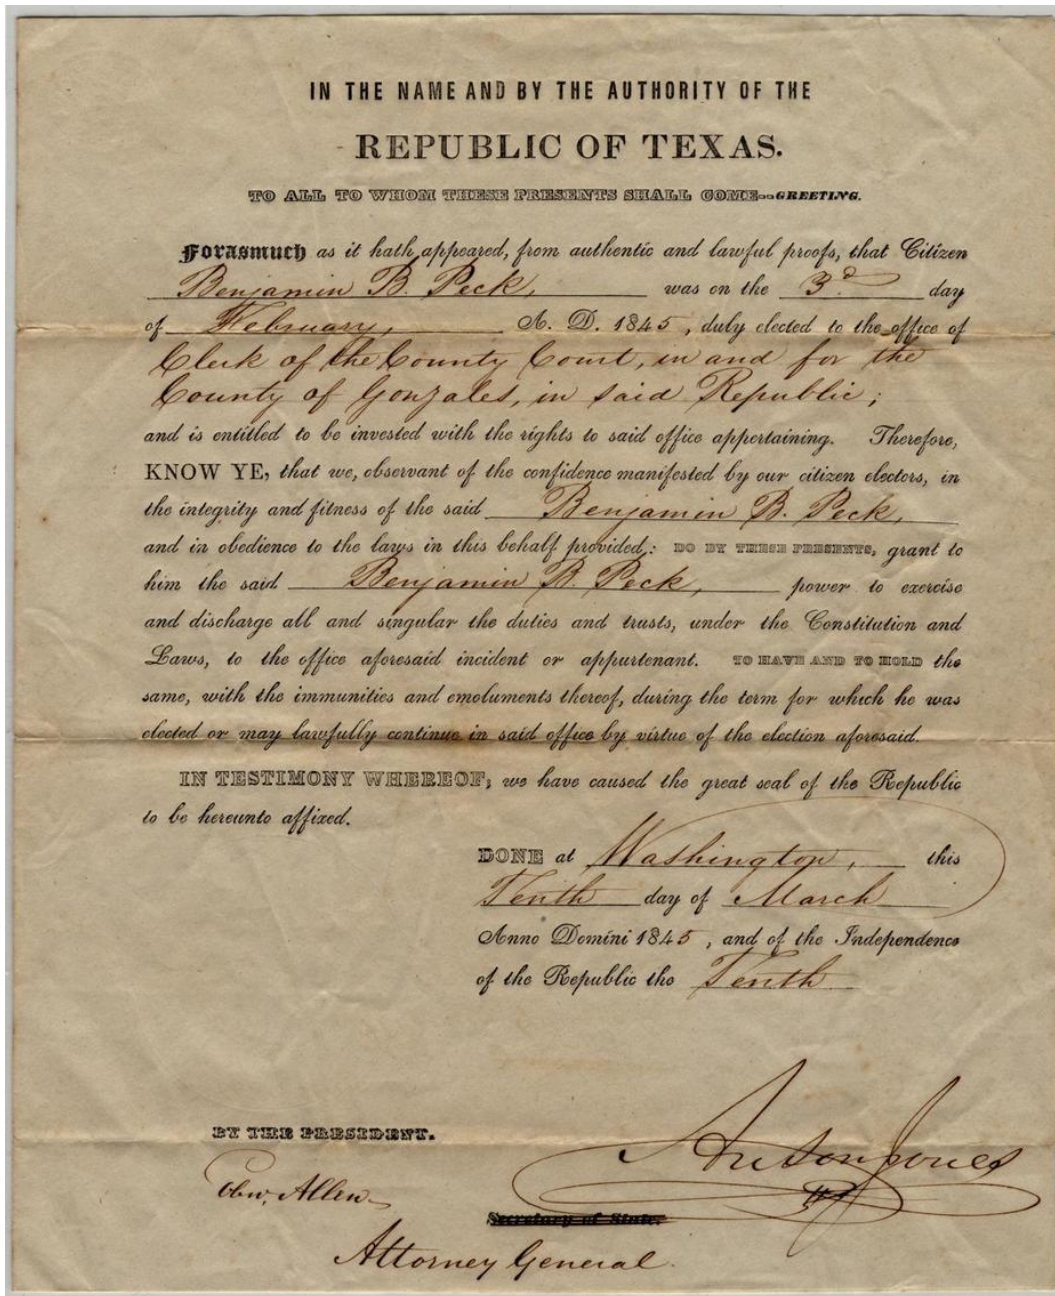 IN THE NAME AND BY THE AUTHORITY OF THE
REPUBLIC OF TEXAS.
TO ALL TO WHOM THESE PRESENTS SHALL COME--GREETING.
Forasmuch as it hath appeared, from authentic and lawful proofs, that Citizen
Benjamin B. Peck, was on the 3d. day
of February, A. D. 1845, duly elected to the office of
Clerk of the County Court, in and for the
County of Gonzales, in said Republic;
and is entitled to be invested with the rights to said office appertaining. Therefore,
KNOW YE, that we, observant of the confidence manifested by our citizen electors, in
the integrity and fitness of the said Benjamin B. Peck,
and in obedience to the laws in this behalf provided,: DO BY THESE PRESENTS, grant to
him the said Benjamin B. Peck, power to exercise
and discharge all and singular the duties and trusts, under the Constitution and
Laws, to the office aforesaid incident or appurtenant. TO HAVE AND TO HOLD the
same, with the immunities and emoluments thereof, during the term for which he was
elected or may lawfully continue in said office by virtue of the election aforesaid.
IN TESTIMONY WHEREOF; we have caused the great seal of the Republic
to be hereunto affixed.
DONE at Washington, this
Tenth day of March
Anno Domini 1845, and of the Independence
of the Republic the Tenth
BY THE PRESIDENT.
Anson Jones
Ebnr. Allen
Secretary of State.
Attorney General.